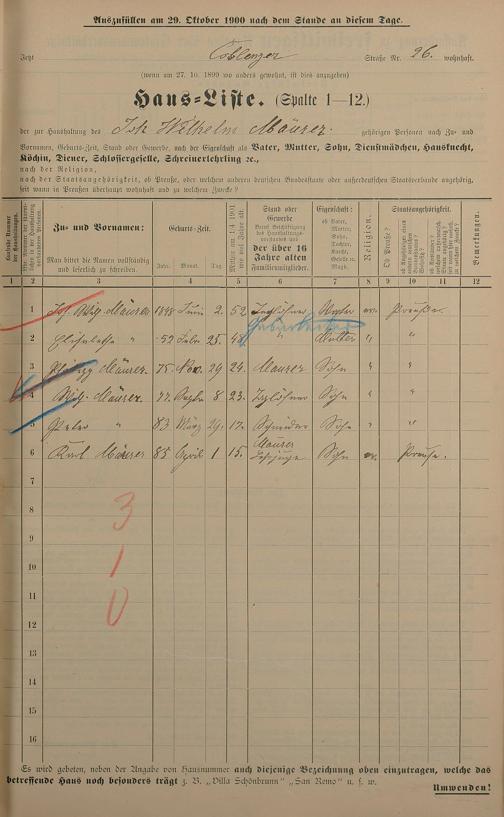 Auszufüllen am 29. Oktober 1900 nach dem Stande an diesem Tage.
Jetzt Coblenzer Straße Nr. 26. wohnhaft.
(wenn am 27. 10. 1899 wo anders gewohnt, ist dies anzugeben)
Haus=Liste. (Spalte 1—12.)
der zur Haushaltung des Joh Wilhelm Mäurer gehörigen Personen nach Zu- und
Vornamen, Geburts-Zeit, Stand oder Gewerbe, nach der Eigenschaft als Vater, Mutter, Sohn, Dienstmädchen, Hausknecht,
Köchin, Diener, Schlossergeselle, Schreinerlehrling ꝛc.,
nach der Religion,
nach der Staatsangehörigkeit, ob Preuße, oder welchem anderen deutschen Bundesstaate oder außerdeutschen Staatsverbande angehörig,
seit wann in Preußen überhaupt wohnhaft und zu welchem Zwecke?
Zu- und Vornamen:
Man bittet die Namen vollständig
und leserlich zu schreiben.
Geburts-Zeit.
Jahr. Monat. Tag
Stand oder
Gewerbe
der über 16
Jahre alten
Familienmitglieder.
Eigenschaft:
ob Vater,
Mutter,
Sohn,
Tochter,
Knecht,
Geselle
oder
Magd.
Religion.
Staatsangehörigkeit.
Ob Preuße?
Bemerkungen.
1 2 3 4 5 6 7 8 9 10 11 12
1 Joh. Wilh. Mäurer 1848 Juni 2. 52 Taglöhner Vater ev. Preuße.
2 Elisabetha " -52 Febr. 25. 48 " Mutter " "
3 Mäurer. 75. Nov. 29 24. Maurer Sohn " "
4 Wilh. Mäurer. 77. Septbr 8 23. Taglöhner Sohn " "
5 Peter " 83 März 29. 17. Schneider Sohn " "
6 Karl Mäurer 85 April 1 15. Maurer Lehrjunge Sohn ev. Preuße.
7
8
9
10
11
12
13
14
15
16
3
1
0
Es wird gebeten, neben der Angabe von Hausnummer auch diejenige Bezeichnung oben einzutragen, welche das
betreffende Haus noch besonders trägt z. B. „Villa Schönbrunn" „San Remo" u. s. w.
Umwenden!